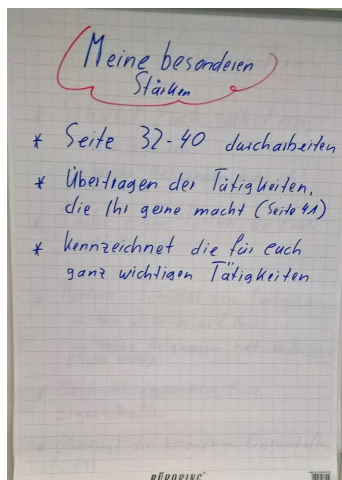 Meine besonderen
Stärken
* Seite 32-40 durcharbeiten
* Übertragen der Tätigkeiten,
die Ihr gerne macht (Seite 41)
* Kennzeichnet die für euch
ganz wichtigen Tätigkeiten
BÜRORING